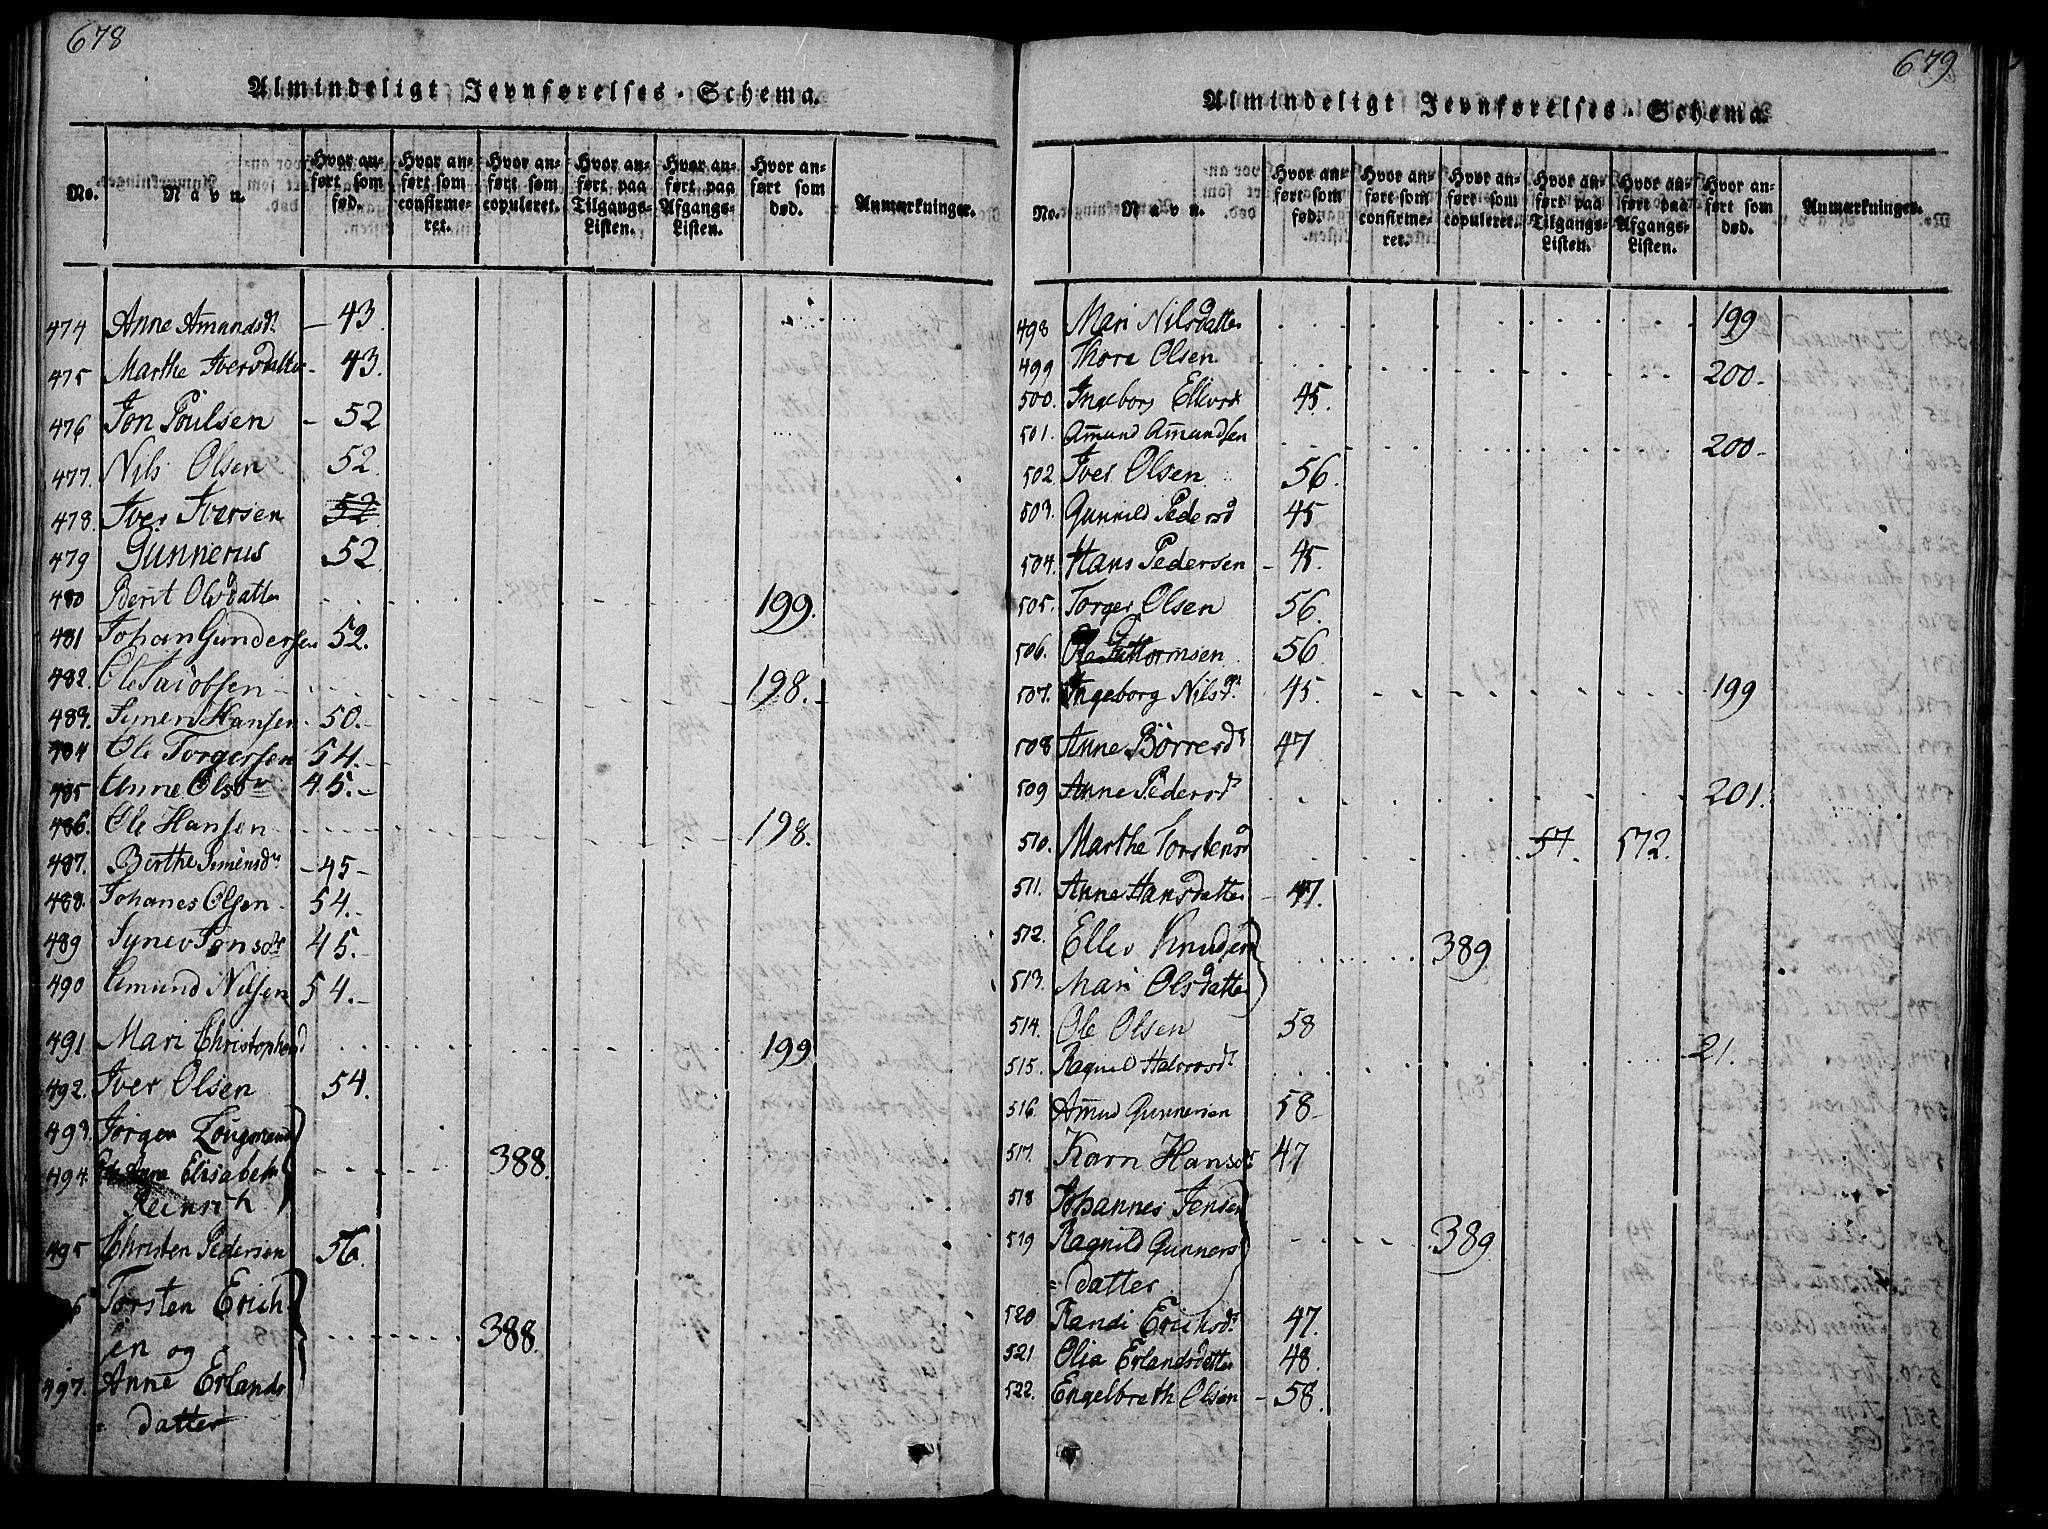 678
Almindeligt Jevnførelses-Schema.
No. Navn. Hvor anført som fød. Hvor anført som confirmeret. Hvor anført som copuleret. Hvor anført paa Tilgangs-Listen. Hvor anført paa Afgangs-Listen. Hvor anført som død. Anmærkninger.
474 Anne Amundsdr. 43.
475 Marthe Iversdatter 43.
476 Jon Poulsen 52
477. Nils Olsen 52.
478. Iver Iversen 52.
479 Gunnerus 52.
480 Berit Olsdatter 199.
481 Johan Gundersen 52.
482. Ole Jacobsen 198.
483. Simen Hansen 50.
484 Ole Torgersen 54.
485 Anne Olsdr 45.
486. Ole Hansen 198.
487. Berthe Simensdr 45
488. Johanes Olsen 54.
489 Synev Jonsdr 45.
490 Amund Nilsen 54.
491 Mari Christophersd 199
492. Iver Olsen 54.
493. Jørgen
494. Anne Elisabeth 388.
Reinrik
495 Christen Pedersen 56.
Torsten Erich-
sen og 388.
497. Anne Erlands
datter
679
Almindeligt Jevnførelses-Schema.
No. Navn. Hvor anført som fød. Hvor anført som confirmeret. Hvor anført som copuleret. Hvor anført paa Tilgangs-Listen. Hvor anført paa Afgangs-Listen. Hvor anført som død. Anmærkninger.
498 Mari Nilsdatter 199
499 Thore Olsen 200.
500. Ingeborg 45.
501. Amund Amundsen 200.
502. Iver Olsen 56.
503. Gunnild Pedersd 45
504. Hans Pedersen 45.
505. Torger Olsen 56.
506. Ole Guttormsen 56
507. Ingeborg Nilsdr. 45. 199
508 Anne Börresdr 47
509 Anne Pedersdr 201.
510. Marthe Torstensd 57. 572.
511. Anne Hansdatter 47.
512. Ellev Knudsen 389.
513. Mari Olsdatter
514. Ole Olsen 58
515. Ragnild Halvorsdr 21.
516. Amund Gunnersen 58
517. Karn Hansdr 47
518 Johannes Jensen
519 Ragnild Gunners 389
datter
520 Randi Erichsdr 47.
521 Olia Erlandsdatter 48.
522. Engelbreth Olsen 58.